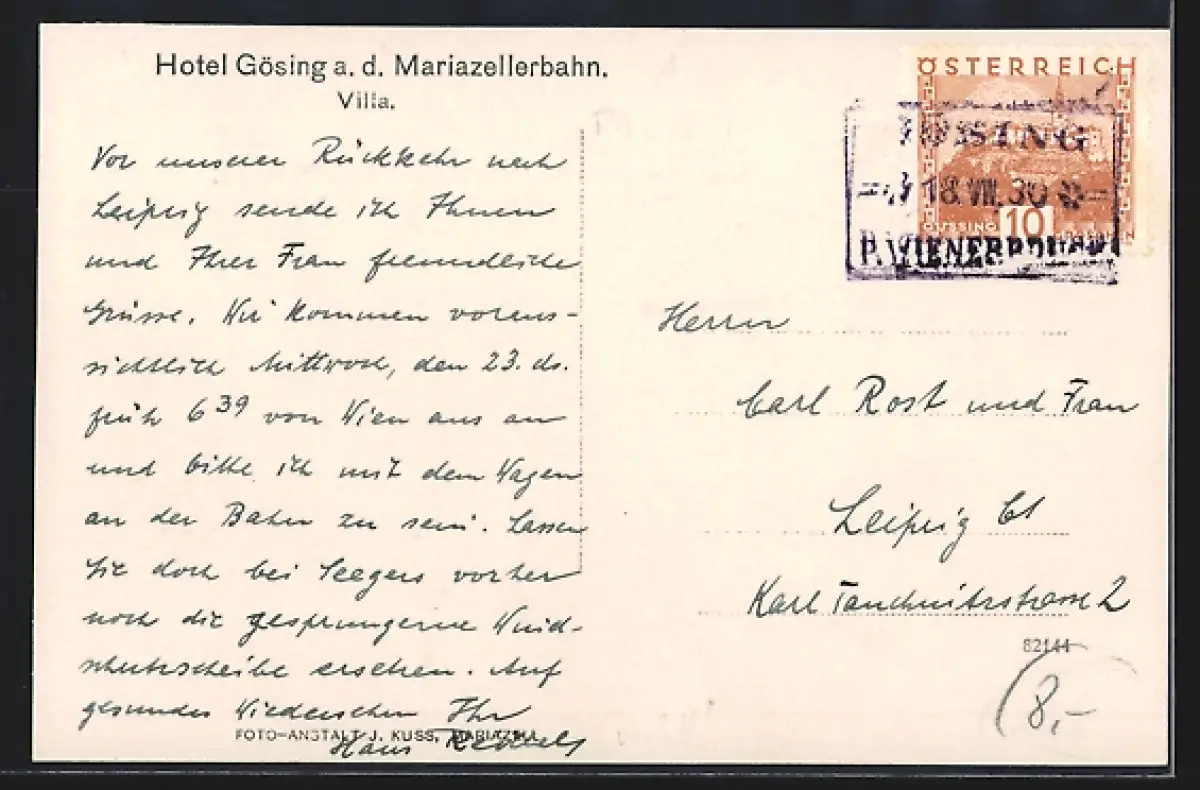 Hotel Gösing a. d. Mariazellerbahn.
Villa.
Vor unserer Rückkehr nach
Leipzig sende ich Ihnen
und Ihrer Frau freundliche
Grüsse. Wir kommen voraus-
sichtlich Mittwoch, den 23. ds.
früh 6 39 von Wien aus an
und bitte ich mit dem Wagen
an der Bahn zu sein. Lassen
Sie doch bei Seegers vorher
noch die gesprungene Wind-
schutzscheibe ersetzen. Auf
gesundes Wiedersehen Ihr
Hans
FOTO-ANSTALT J. KUSS, MARIAZELL
ÖSTERREICH
GÖSING
18.VIII.30
P. WIENERBRUCK
GÜSSING 10 GROSCHEN
Herrn
Carl Rost und Frau
Leipzig C1
Karl Tauchnitzstrasse 2
82144
(8,-